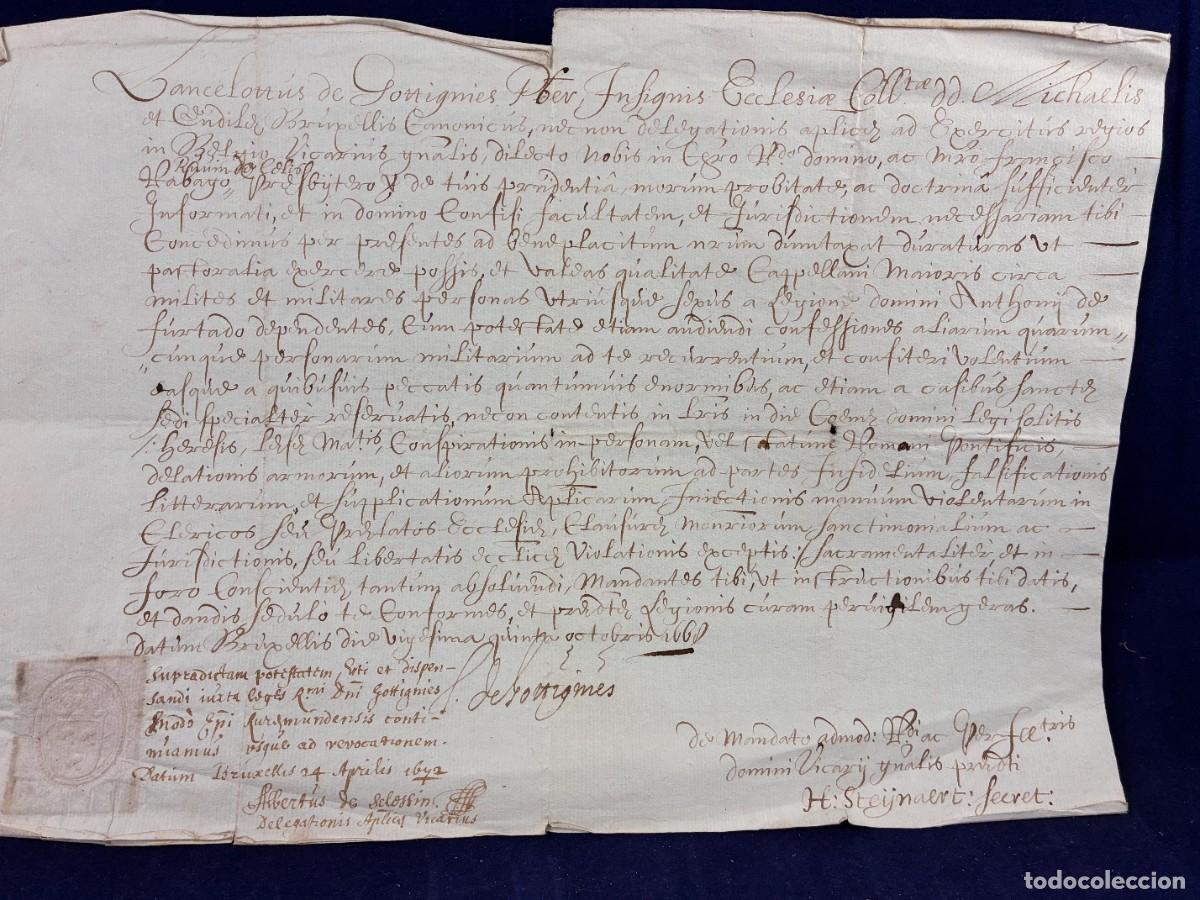 Lancelottus de Gottignies Pbr, Insignis Ecclesiæ Coll.tæ DD. Michaelis
et Gudilæ Bruxellis Canonicus, necnon delegationis aplicæ ad Exercitus regios
in Belgio Vicarius gnalis, dilecto Nobis in Chro Rdo domino, ac Mro Francisco
Rabago, Presbytero de tuis prudentia, morum probitate, ac doctrina sufficienter
Informati, et in domino Confisi facultatem, et Jurisdictionem necessariam tibi
Concedimus per presentes ad beneplacitum nrum duntaxat duraturas Vt
pastoralia exercere possis, et Valeas qualitate Cappellani Maioris circa
milites et militares personas Vtriusque sexus a Legione domini Anthonij de
furtado dependentes, Cum potestate etiam audiendi confessiones aliarum quarum"
"cunque personarum militarium ad te recurrentium, et confiteri Volentium
easque a quibusuis peccatis quantumuis enormibus, ac etiam a casibus sanctæ
sedi specialter reseruatis, necon contentis in Lris in die Coenæ domini legi solitis
/: heresis, læsæ Matis, Conspirationis in personam, Vel statum Romani Pontificis,
delationis armorum, et aliorum prohibitorum ad partes Infidelium, falsificationis
litterarum, et supplicationum Aplicarum, Iniectionis manuum Violentarum in
Clericos seu Prælatos Ecclesiæ, Clausuræ Monriorum sanctimonialium ac
Jurisdictionis, seu libertatis ecclicæ Violationis exceptis :/ sacramentaliter et in
foro Conscientiæ tantum absoluendi, Mandantes tibi, Vt instructionibus tibi datis,
et dandis sedulo te Conformes, et prædtæ Legionis curam peruigilem geras.
datum Bruxellis die Vigesima quinta octobris 1668
L. de Gottignies
supradictam potestatem, Vti et dispen-
sandi iuxta leges Rmi Dni Gottignies
modo Epi Ruremundensis conti-
nuamus Vsque ad revocationem.
Datum Bruxellis 24 Aprilis 1672
Albertus de
Delegationis Aplicæ Vicarius
de Mandato admod: Rdi ac
domini Vicarij gnalis prædti
H: Steijnaert: secret:
todocoleccion